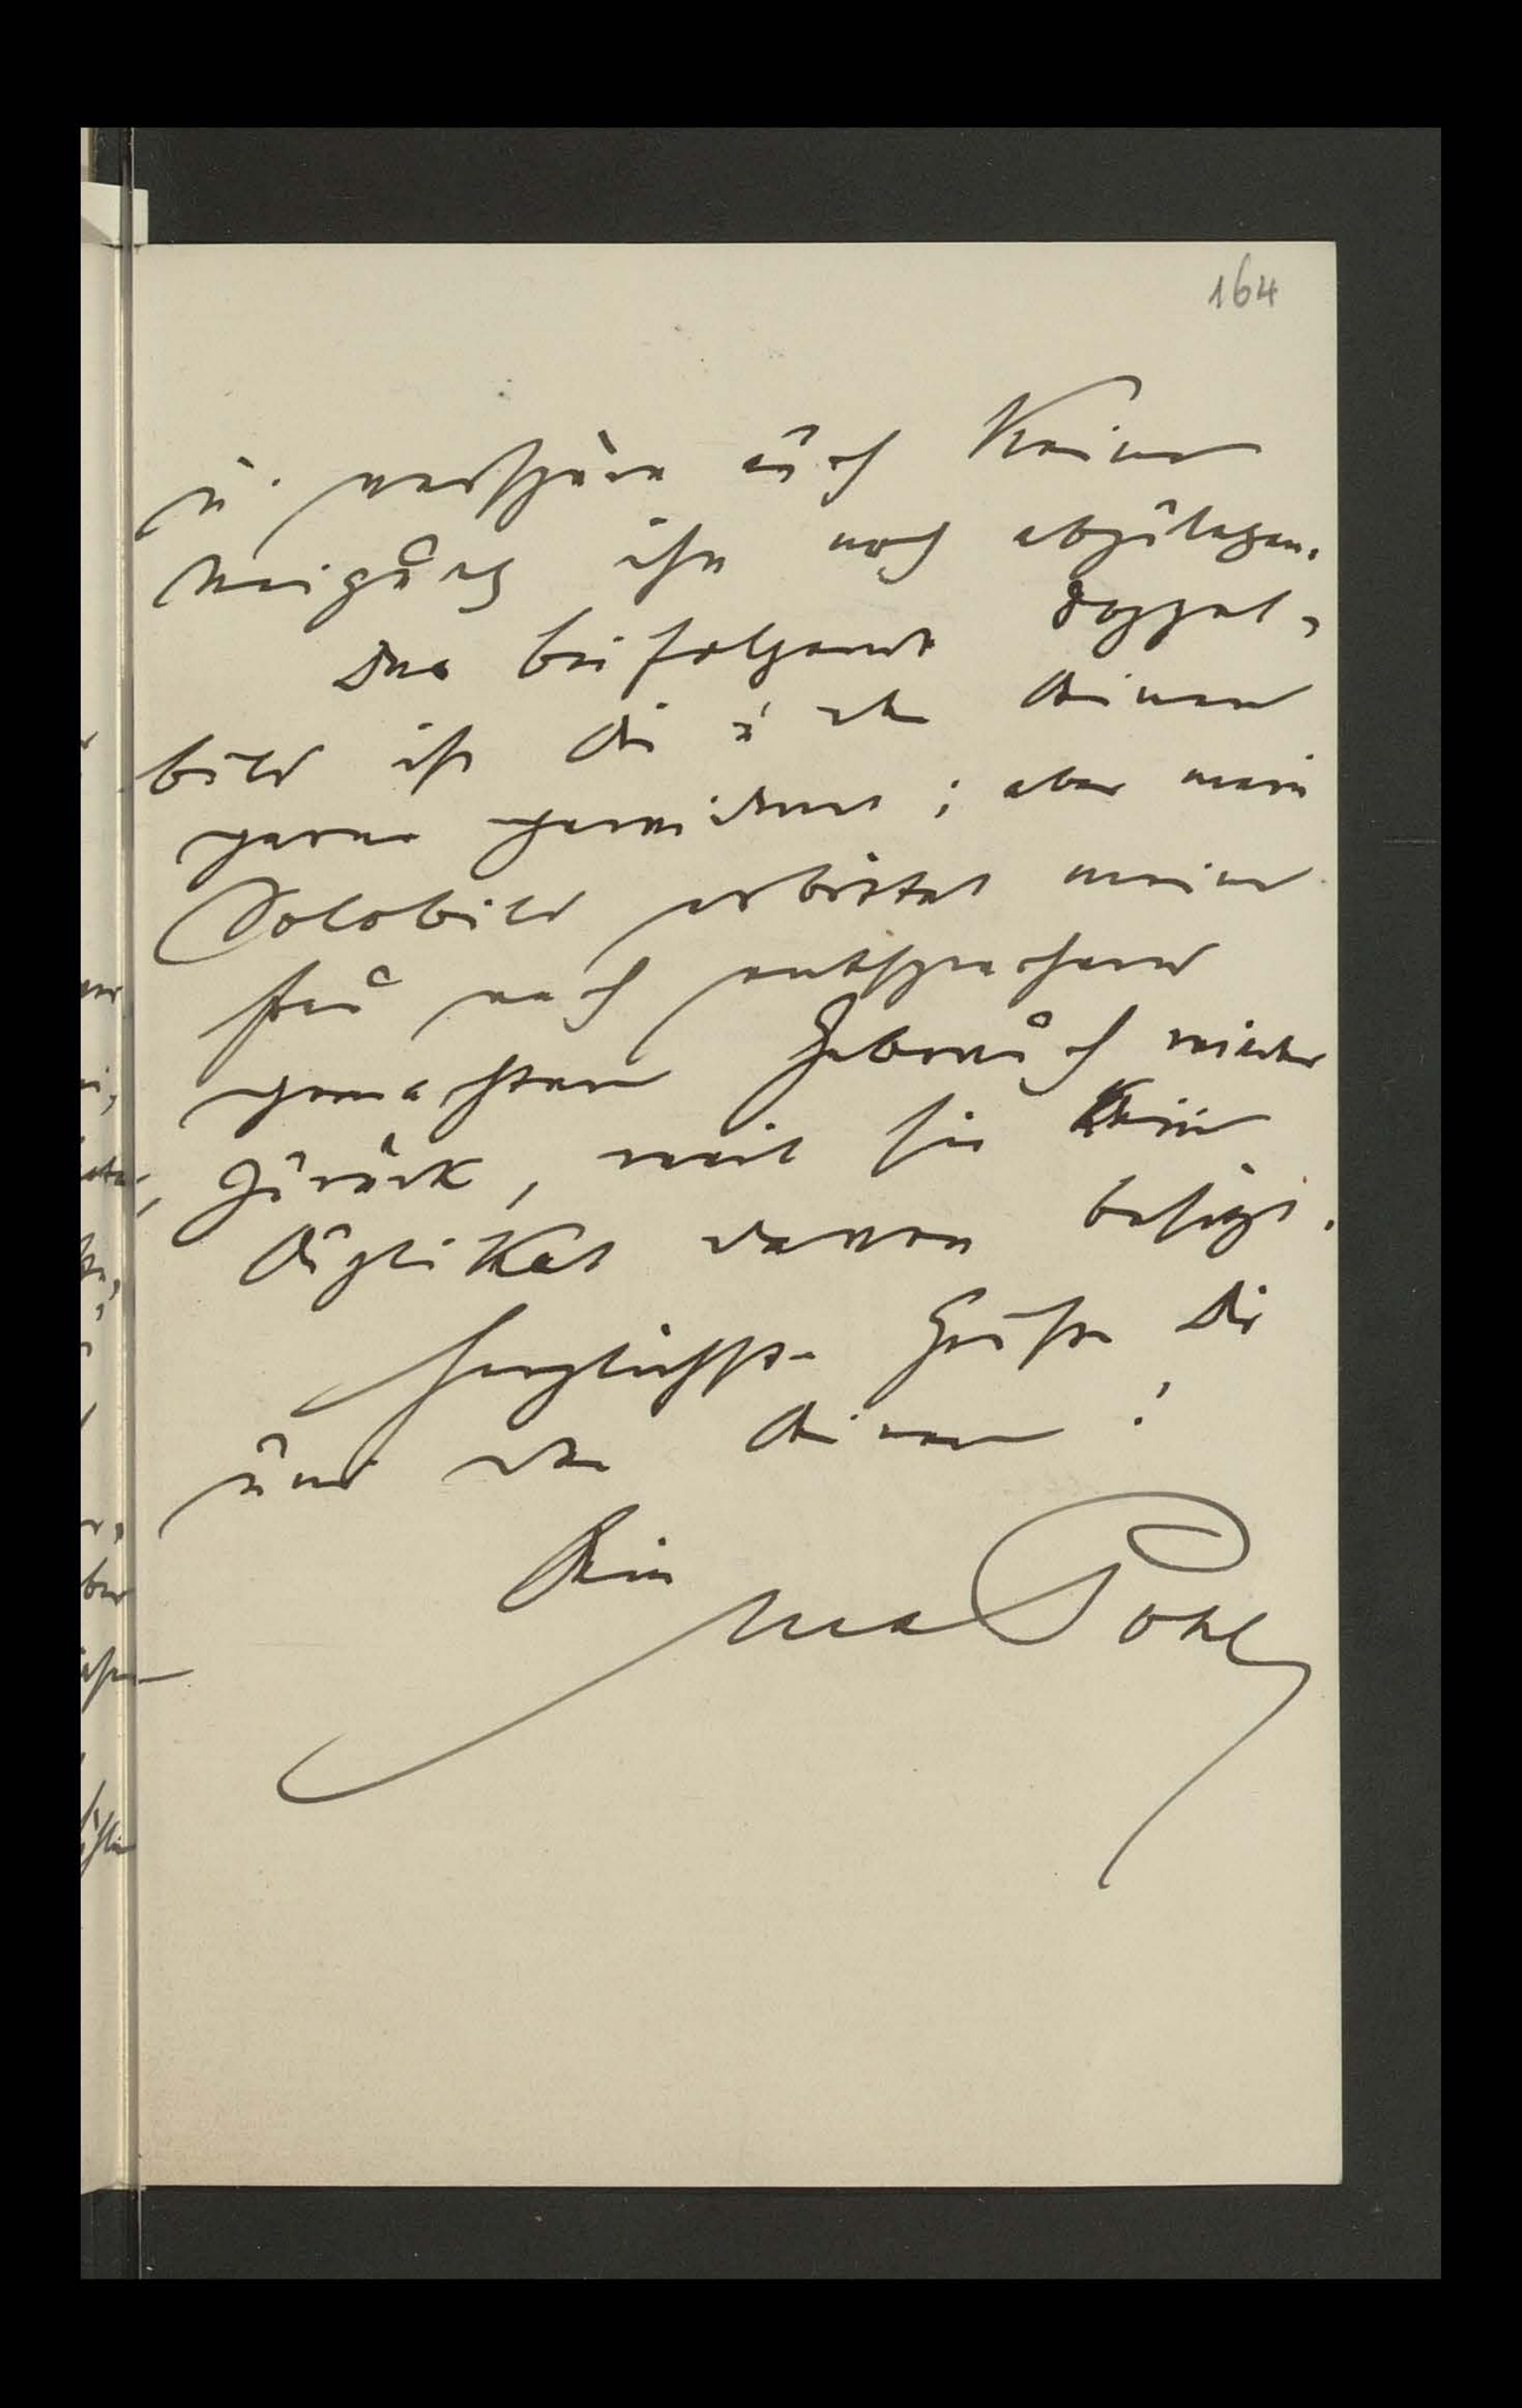 164
u. verspüre auch keine
Neigung ihn noch abzulegen.
Das beifolgende Doppel-
bild ist Dir u. den Deinen
gerne gewidmet; aber mein
Solobild erbittet meine
Frau nach entsprechend
gemachtem Gebrauch wieder
zurück, weil sie kein
Duplikat davon besitzt.
Herzlichste Grüße Dir
und den Deinen!
Dein
Max Pohl